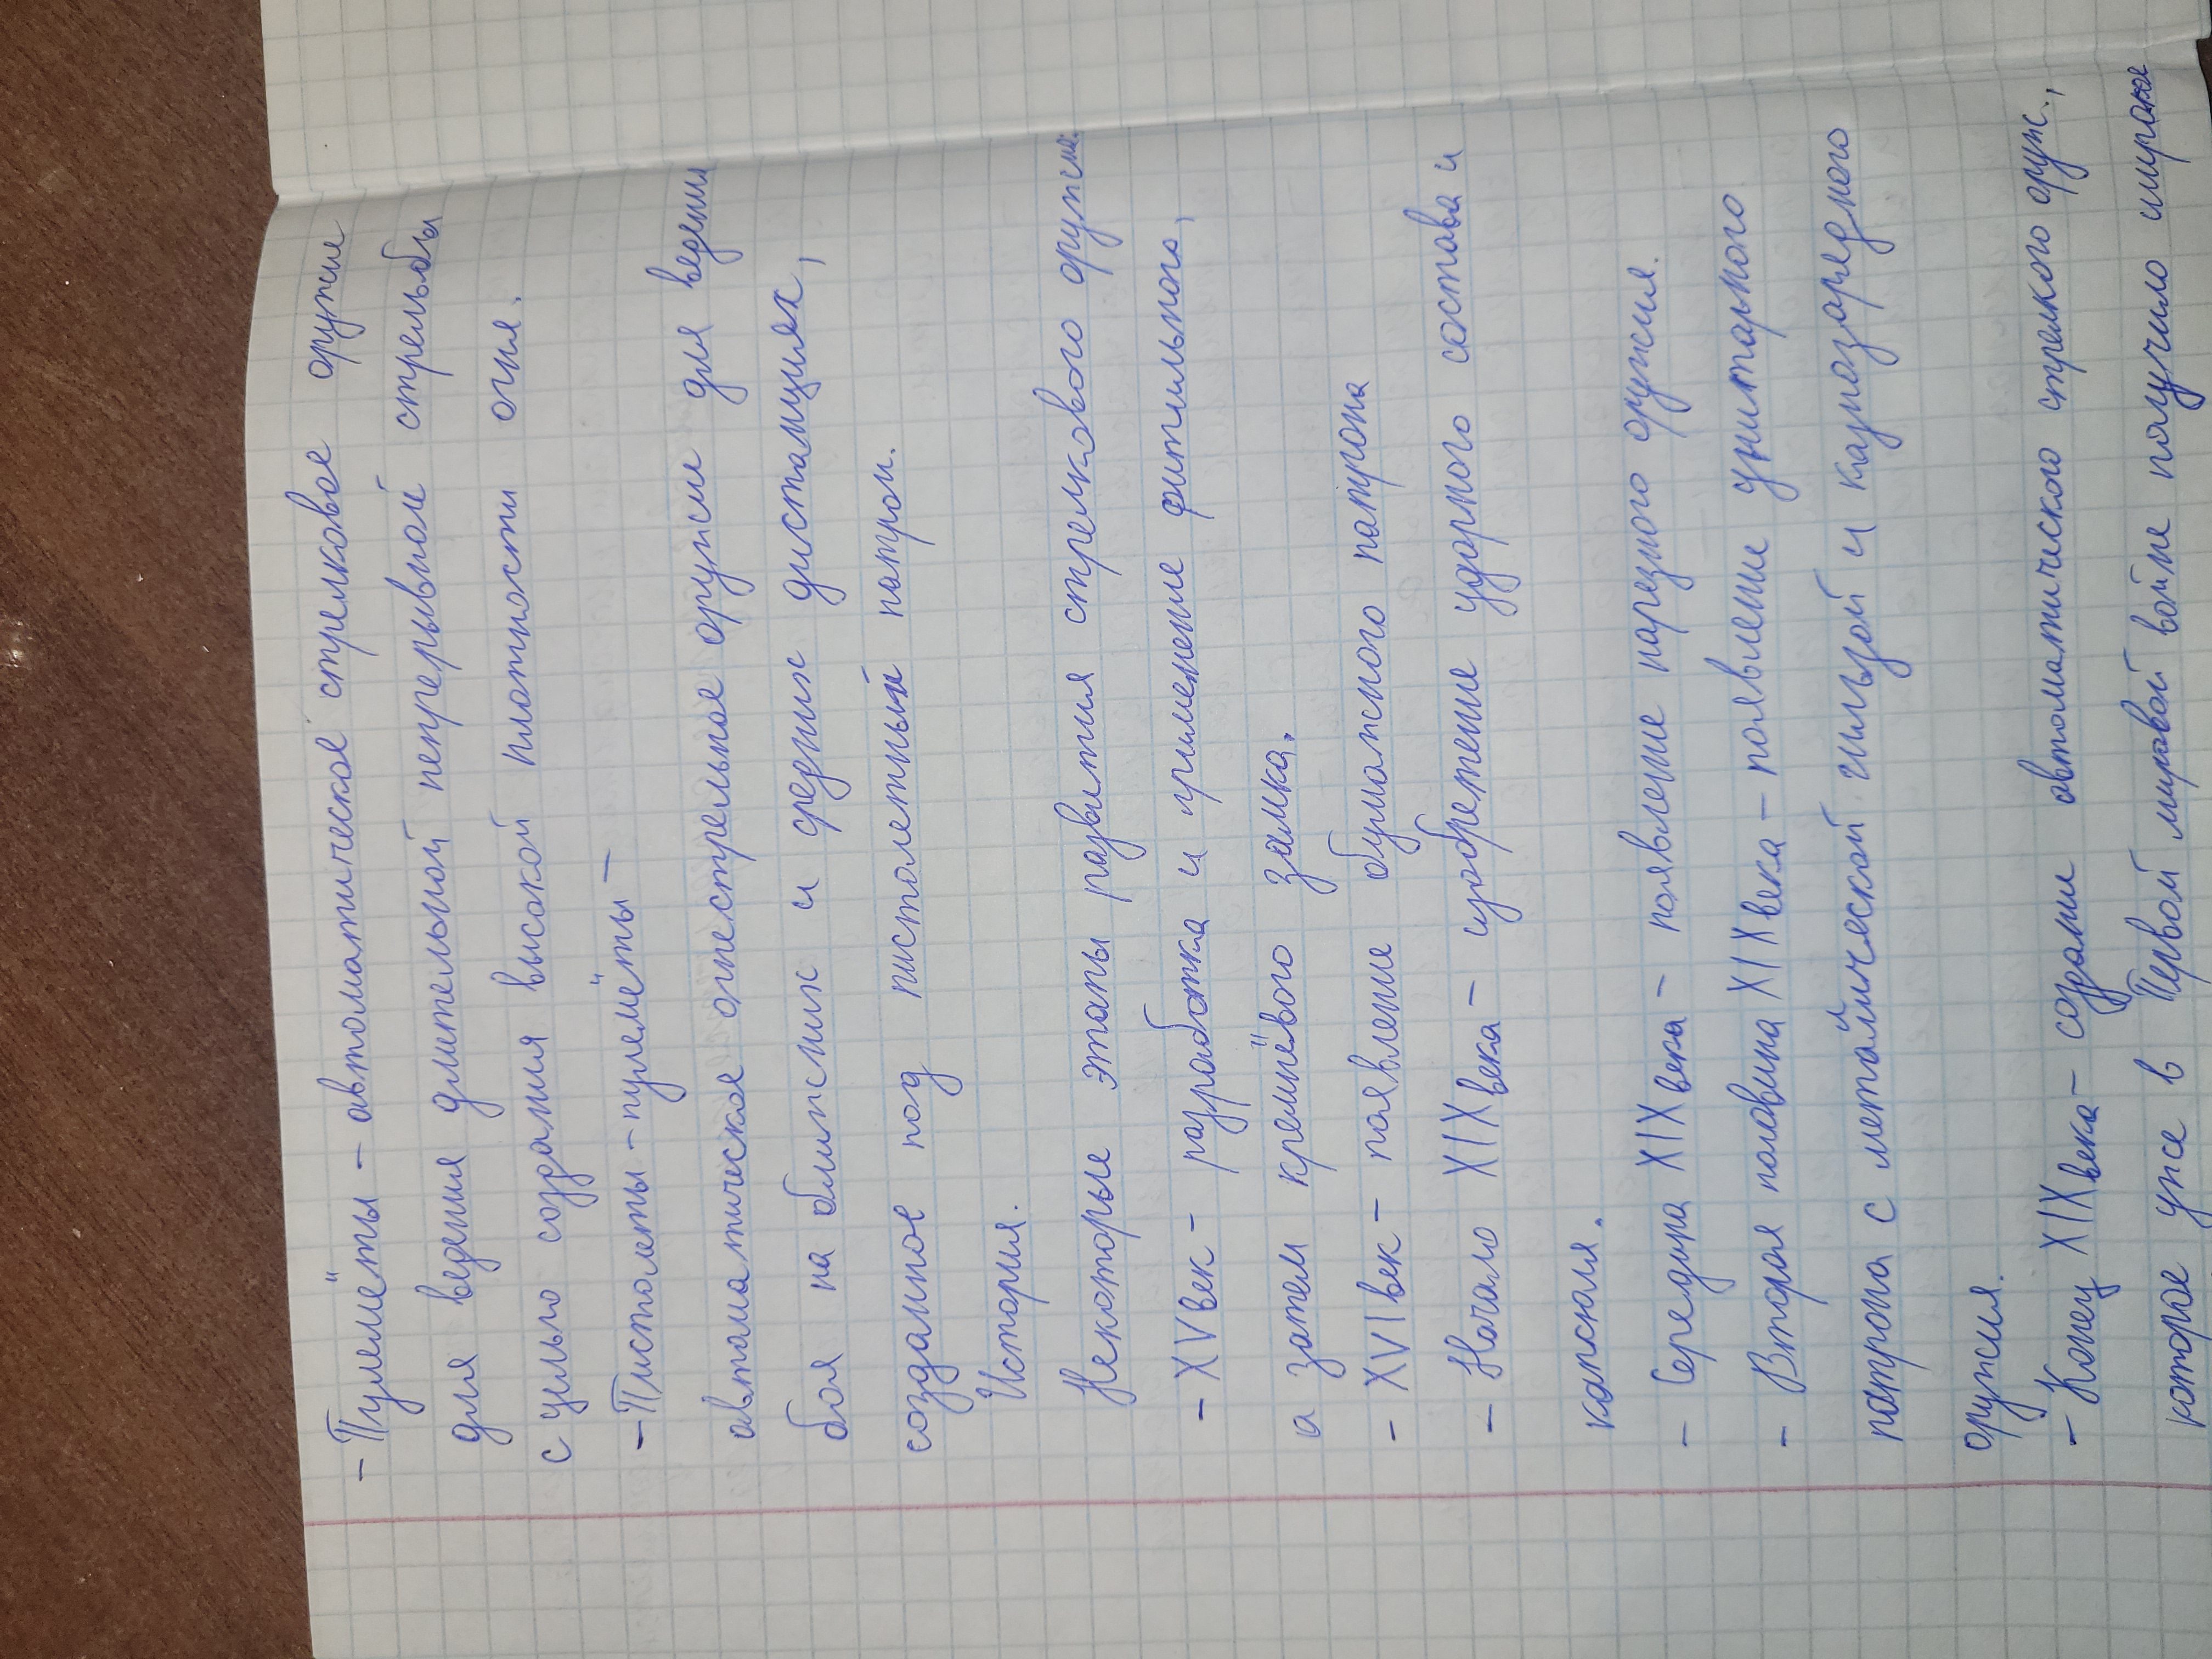 - Пулемёты - автоматическое стрелковое оружие
для ведения длительной непрерывной стрельбы
с целью создания высокой плотности огня.
- Пистолеты-пулемёты -
автоматическое огнестрельное оружие для ведения
боя на близких и средних дистанциях,
созданное под пистолетный патрон.
История.
Некоторые этапы развития стрелкового оружия.
- XV век - разработка и применение фитильного,
а затем кремнёвого замка.
- XVI век - появление бумажного патрона
- Начало XIX века - изобретение ударного состава и
капсюля.
- Середина XIX века - появление нарезного оружия.
- Вторая половина XIX века - появление унитарного
патрона с металической гильзой и казнозарядного
оружия.
- Конец XIX века - создание автоматического стрелкого оруж.,
которое уже в Первой мировой войне получило широкое